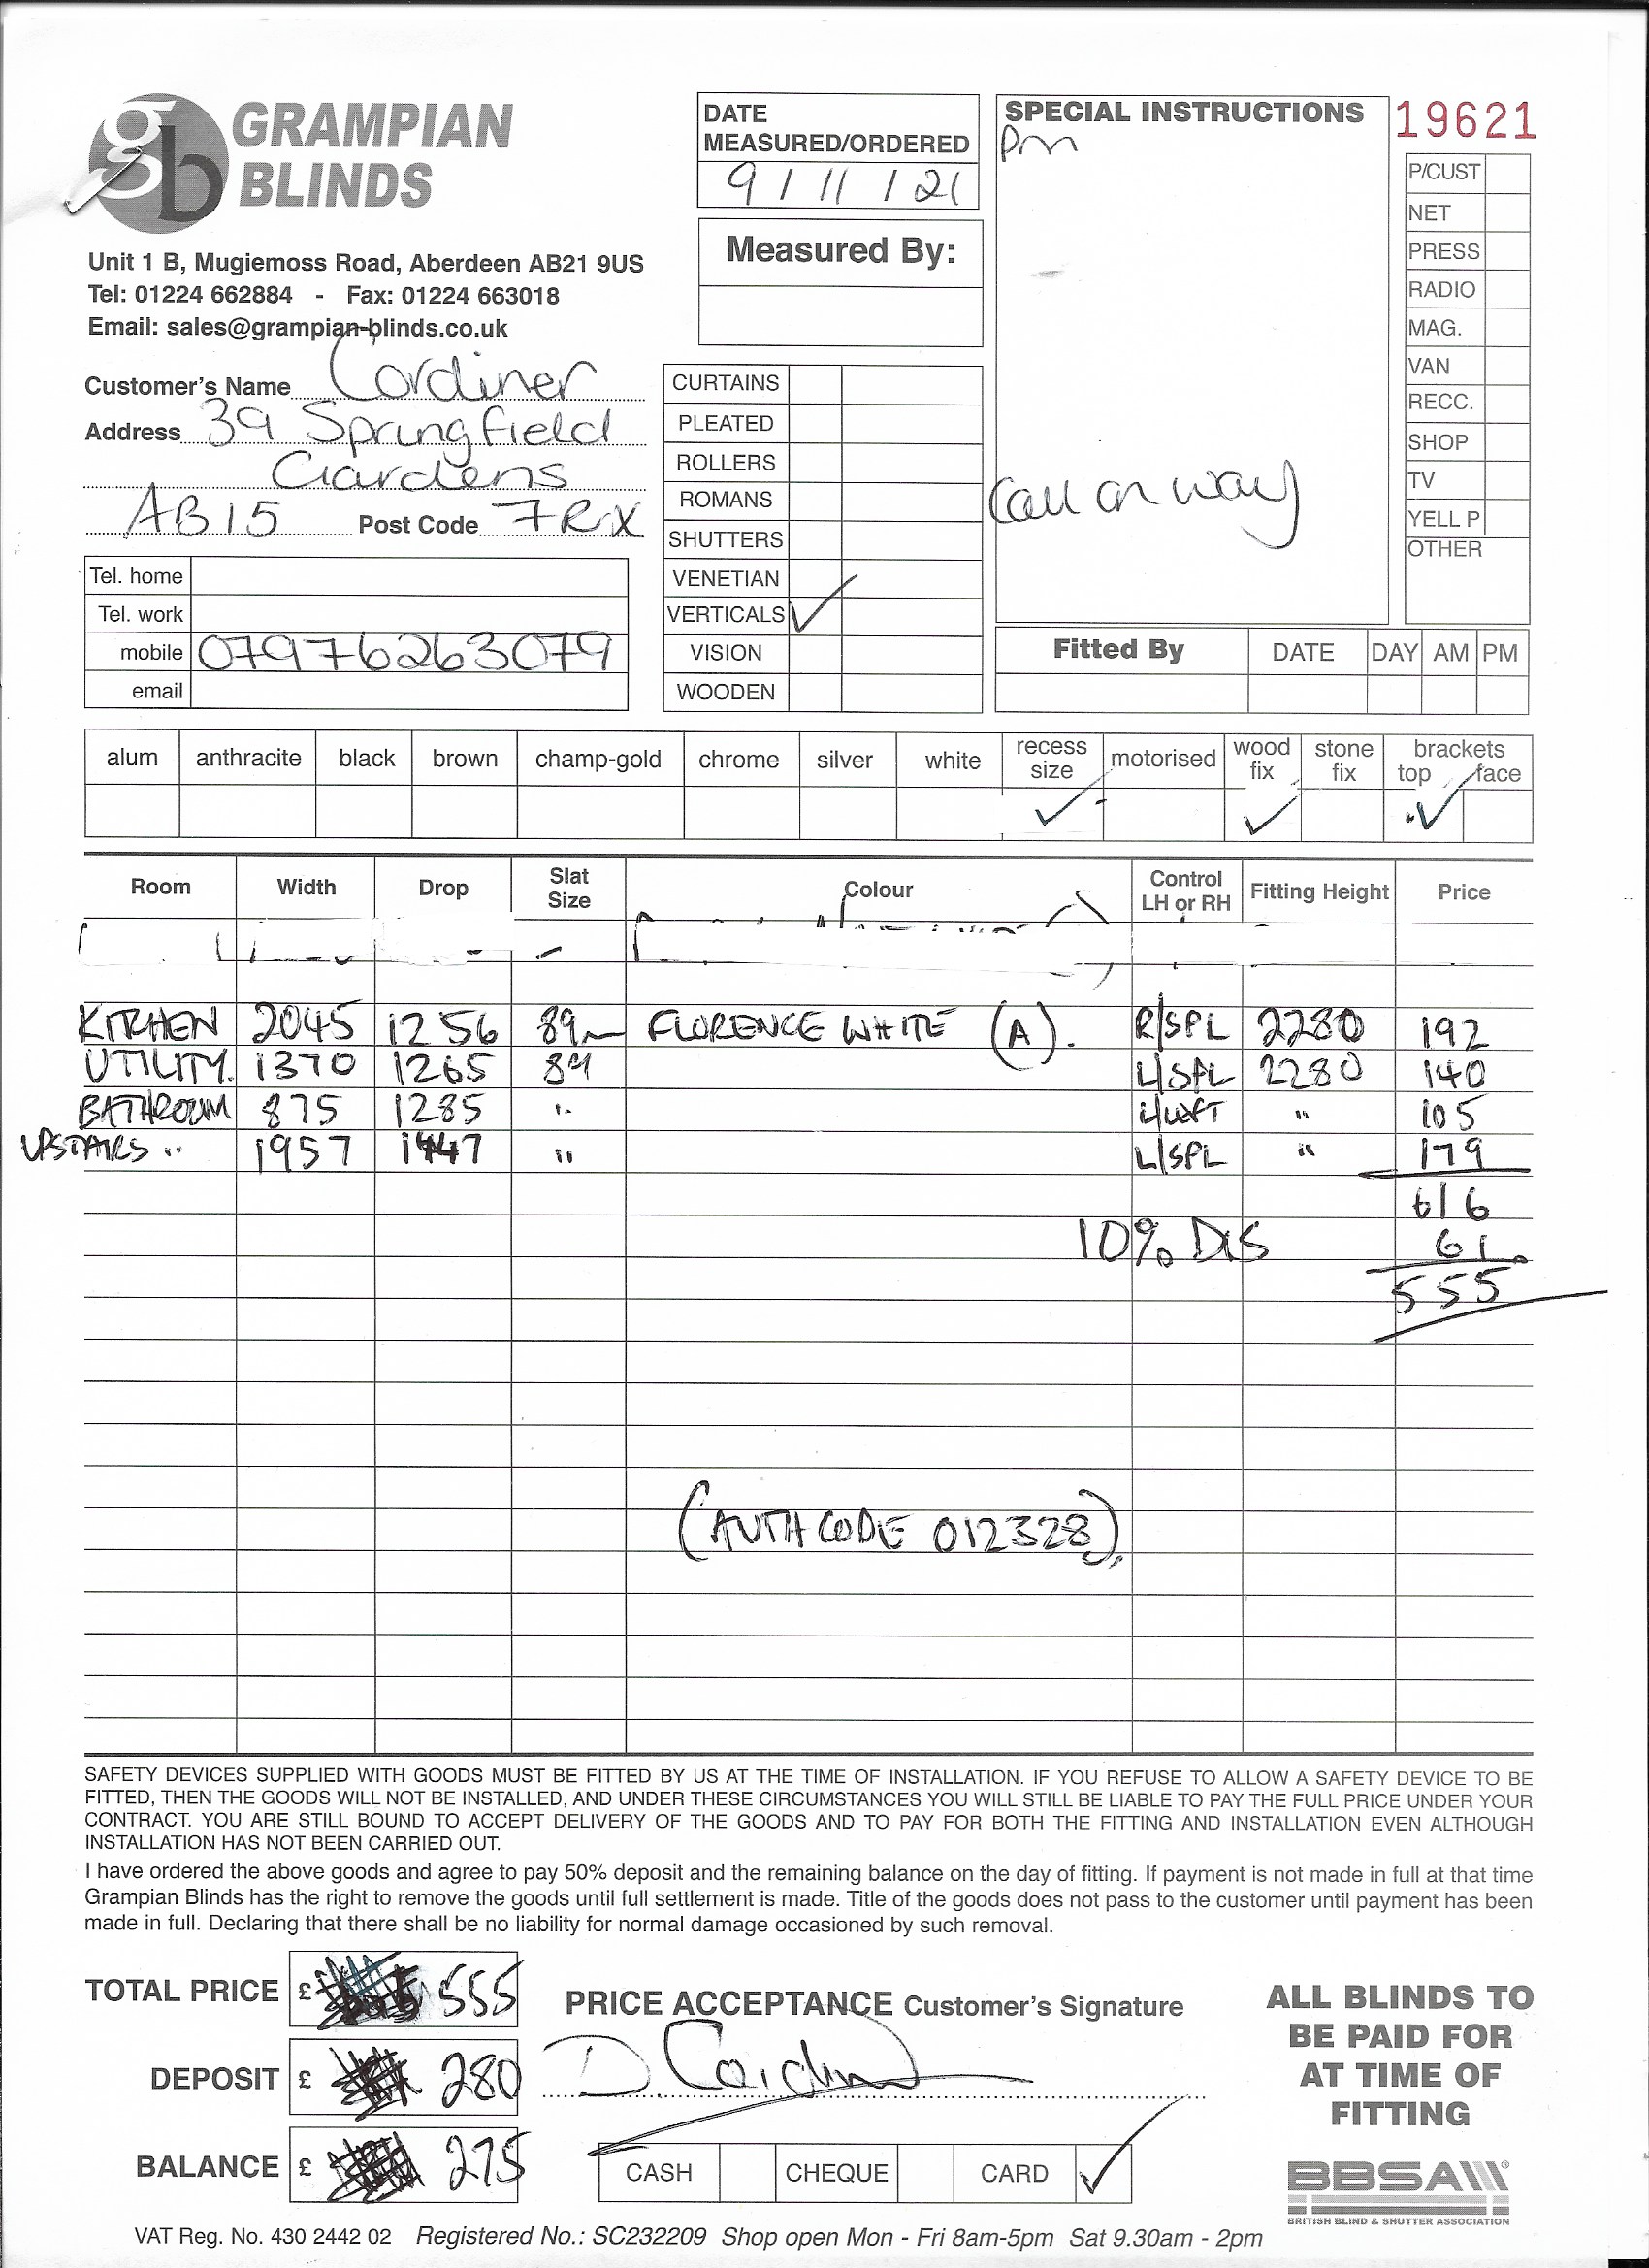 GRAMPIAN
BLINDS
Unit 1 B, Mugiemoss Road, Aberdeen AB21 9US
Tel: 01224 662884 - Fax: 01224 663018
Email: sales@grampian-blinds.co.uk
Customer's Name Cordiner
Address 39 Springfield
Gardens
AB15 Post Code 7RX
Tel. home
Tel. work
mobile 07976263079
email
DATE
MEASURED/ORDERED
9/11/21
Measured By:
CURTAINS
PLEATED
ROLLERS
ROMANS
SHUTTERS
VENETIAN
VERTICALS ✓
VISION
WOODEN
SPECIAL INSTRUCTIONS
pm
Call on way
19621
P/CUST
NET
PRESS
RADIO
MAG.
VAN
RECC.
SHOP
TV
YELL P
OTHER
Fitted By DATE DAY AM PM
alum anthracite black brown champ-gold chrome silver white recess size motorised wood fix stone fix brackets top face
✓ ✓ ✓
Room Width Drop Slat Size Colour Control LH or RH Fitting Height Price
KITCHEN 2045 1256 89 FLORENCE WHITE (A). R/SPL 2280 192
UTILITY. 1370 1265 89 L/SPL 2280 140
BATHROOM 875 1285 " " 105
UPSTAIRS " 1957 1447 " L/SPL " 179
616
10% DIS 61
555
(AUTH CODE 012328)
SAFETY DEVICES SUPPLIED WITH GOODS MUST BE FITTED BY US AT THE TIME OF INSTALLATION. IF YOU REFUSE TO ALLOW A SAFETY DEVICE TO BE
FITTED, THEN THE GOODS WILL NOT BE INSTALLED, AND UNDER THESE CIRCUMSTANCES YOU WILL STILL BE LIABLE TO PAY THE FULL PRICE UNDER YOUR
CONTRACT. YOU ARE STILL BOUND TO ACCEPT DELIVERY OF THE GOODS AND TO PAY FOR BOTH THE FITTING AND INSTALLATION EVEN ALTHOUGH
INSTALLATION HAS NOT BEEN CARRIED OUT.
I have ordered the above goods and agree to pay 50% deposit and the remaining balance on the day of fitting. If payment is not made in full at that time
Grampian Blinds has the right to remove the goods until full settlement is made. Title of the goods does not pass to the customer until payment has been
made in full. Declaring that there shall be no liability for normal damage occasioned by such removal.
TOTAL PRICE £ 555
DEPOSIT £ 280
BALANCE £ 275
PRICE ACCEPTANCE Customer's Signature
D. Cordiner
CASH CHEQUE CARD ✓
ALL BLINDS TO
BE PAID FOR
AT TIME OF
FITTING
BBSA
BRITISH BLIND & SHUTTER ASSOCIATION
VAT Reg. No. 430 2442 02 Registered No.: SC232209 Shop open Mon - Fri 8am-5pm Sat 9.30am - 2pm